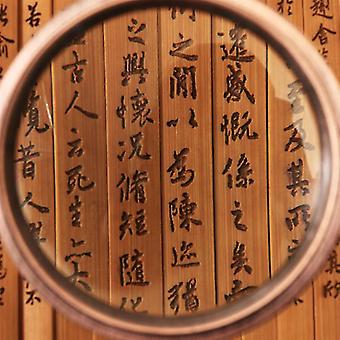 趣舍
至及其所
遷感慨係之矣向
之間以為陳迹猶
之興懷況脩短隨化
古人云死生亦大
若
覽昔人
不